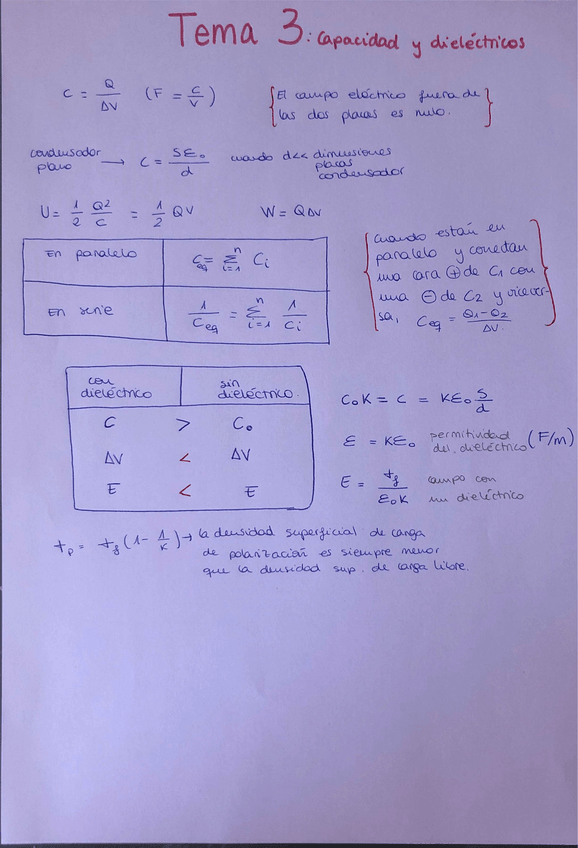 Tema 3: Capacidad y dieléctricos
C = Q/ΔV (F = C/V)
{El campo eléctrico fuera de
las dos placas es nulo.}
condensador
plano → C = SE₀/d cuando d<< dimensiones
placas
condensador
U = 1/2 Q²/C = 1/2 QV W = QΔV
En paralelo Ceq = Σ(i=1→n) Ci
En serie 1/Ceq = Σ(i=1→n) 1/Ci
{Cuando están en
paralelo y conectan
una cara ⊕ de C1 con
una ⊖ de C2 y vicever-
sa, Ceq = Q1-Q2/ΔV}
con
dieléctrico
sin
dieléctrico
C > C₀
ΔV < ΔV
E < E
C₀K = C = KE₀ S/d
E = KE₀ permitividad
del dieléctrico (F/m)
E = ɬf/E₀K campo con
un dieléctrico
ɬp = ɬf (1 - 1/K) → la densidad superficial de carga
de polarización es siempre menor
que la densidad sup. de carga libre.